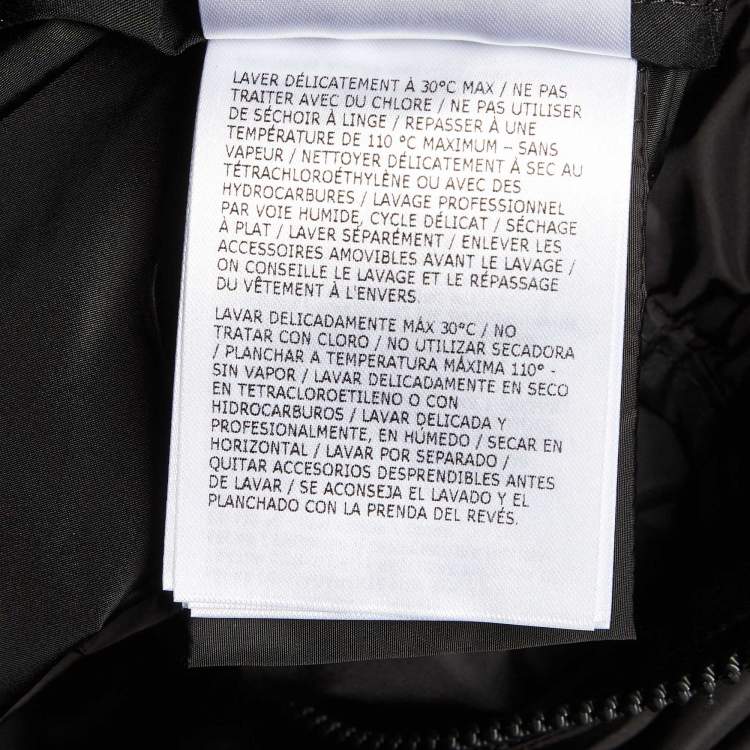 LAVER DÉLICATEMENT À 30°C MAX / NE PAS
TRAITER AVEC DU CHLORE / NE PAS UTILISER
DE SÉCHOIR À LINGE / REPASSER À UNE
TEMPÉRATURE DE 110 °C MAXIMUM – SANS
VAPEUR / NETTOYER DÉLICATEMENT À SEC AU
TÉTRACHLOROÉTHYLÈNE OU AVEC DES
HYDROCARBURES / LAVAGE PROFESSIONNEL
PAR VOIE HUMIDE, CYCLE DÉLICAT / SÉCHAGE
À PLAT / LAVER SÉPARÉMENT / ENLEVER LES
ACCESSOIRES AMOVIBLES AVANT LE LAVAGE /
ON CONSEILLE LE LAVAGE ET LE RÉPASSAGE
DU VÊTEMENT À L'ENVERS.
LAVAR DELICADAMENTE MÁX 30°C / NO
TRATAR CON CLORO / NO UTILIZAR SECADORA
/ PLANCHAR A TEMPERATURA MÁXIMA 110° -
SIN VAPOR / LAVAR DELICADAMENTE EN SECO
EN TETRACLOROETILENO O CON
HIDROCARBUROS / LAVAR DELICADA Y
PROFESIONALMENTE, EN HÚMEDO / SECAR EN
HORIZONTAL / LAVAR POR SEPARADO /
QUITAR ACCESORIOS DESPRENDIBLES ANTES
DE LAVAR / SE ACONSEJA EL LAVADO Y EL
PLANCHADO CON LA PRENDA DEL REVÉS.